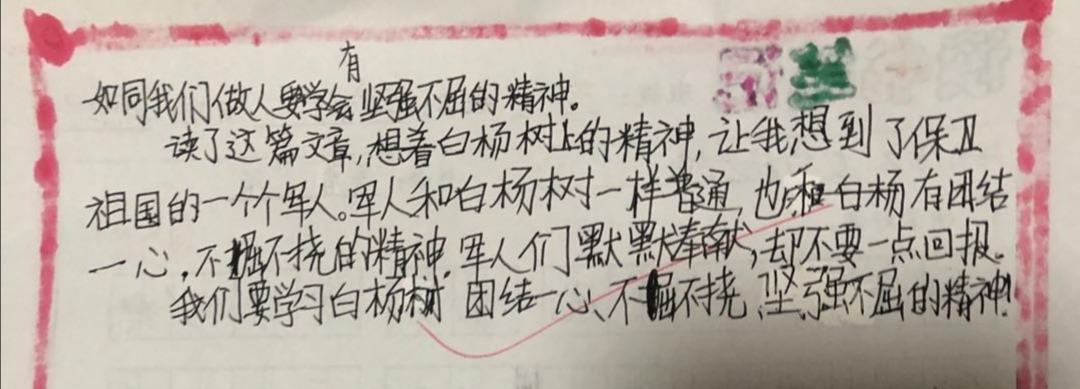 如同我们做人要学会有坚强不屈的精神。
读了这篇文章,想着白杨树上的精神,让我想到了保卫
祖国的一个个军人。军人和白杨树一样普通,也和白杨有团结
一心,不屈不挠的精神.军人们默默奉献,却不要一点回报。
我们要学习白杨树 团结一心、不屈不挠、坚强不屈的精神!